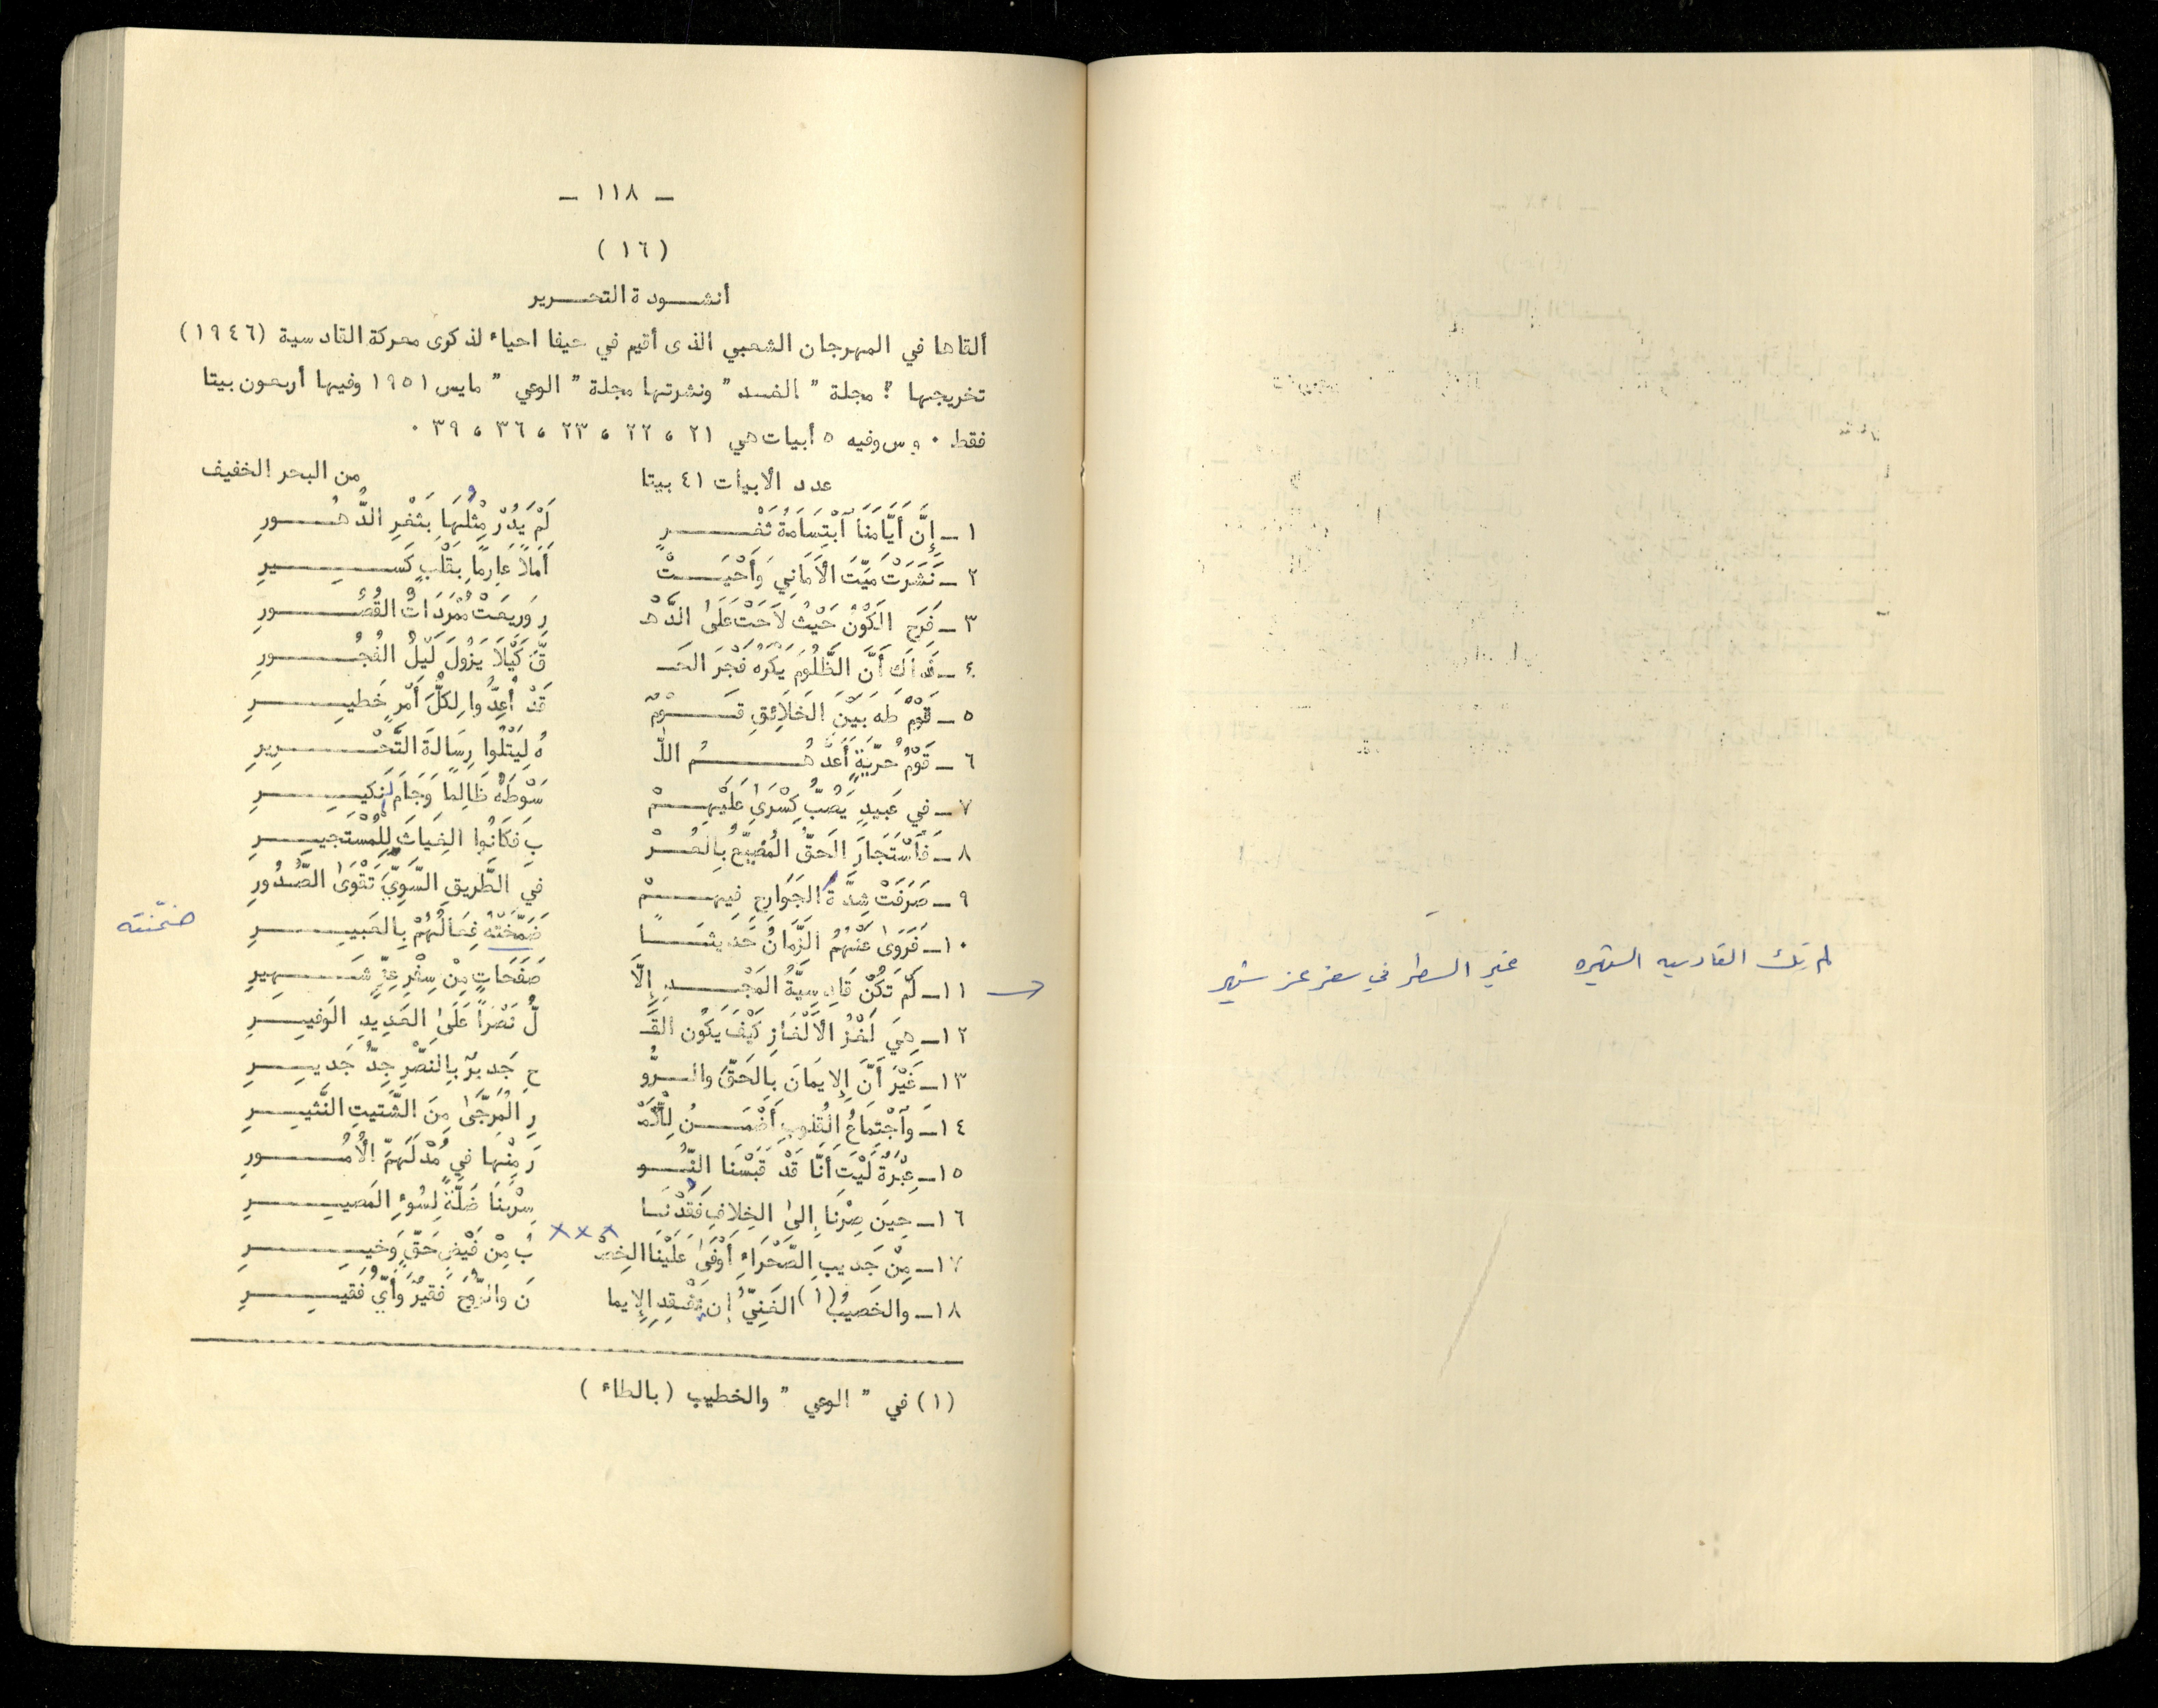 ـ ١١٨ ـ
( ١٦ )
أنشودة التحرير
ألقاها في المهرجان الشعبي الذى أقيم في حيفا احياء لذكرى معركة القادسية (١٩٤٦)
تخريجها : مجلة " الغد " ونشرتها مجلة " الوعي " مايس ١٩٥١ وفيها أربعون بيتا
فقط . و س وفيه ٥ أبيات هي ٢١ ، ٢٢ ، ٢٣ ، ٣٦ ، ٣٩ .
عدد الأبيات ٤١ بيتا من البحر الخفيف
١ ـ إِنَّ أَيَّامَنَا ابْتِسَامَةُ ثَغْرٍ لَمْ يَدُرْ مِثْلُهَا بِثَغْرِ الدُّهُورِ
٢ ـ نَشَرَتْ مَيِّتَ الأَمَانِي وَأَحْيَتْ أَمَلاً عَارِمًا بِقَلْبٍ كَسِيرِ
٣ ـ فَرِحَ الكَوْنُ حَيْثُ لاَحَتْ عَلَى الدَّهْ رِ وَرِيعَتْ مُمَرَّدَاتُ القُصُورِ
٤ ـ ذَاكَ أَنَّ الظَّلُومَ يَكْرَهُ فَجْرَ الحَـ قِّ كَيْلاَ يَزُولَ لَيْلُ الفُجُورِ
٥ ـ قَوْمُ طَهَ بَيْنَ الخَلاَئِقِ قَوْمٌ قَدْ أُعِدُّوا لِكُلِّ أَمْرٍ خَطِيرِ
٦ ـ قَوْمُ حُرِّيَّةٍ أَعَدَّهُمُ اللَّـ هُ لِيَتْلُوا رِسَالَةَ التَّحْرِيرِ
٧ ـ في عَبِيدٍ يَصُبُّ كِسْرَى عَلَيْهِمْ سَوْطَهُ ظَالِمًا وَجَامَ نَكِيرِ
٨ ـ فَاسْتَجَارَ الحَقُّ المُضَيَّعُ بِالعُرْ بِ فَكَانُوا الغِيَاثَ لِلْمُسْتَجِيرِ
٩ ـ صَرَفَتْ شِدَّةُ الجَوَارِحِ فِيهِمْ في الطَّرِيقِ السَّوِيِّ تَقْوَى الصُّدُورِ
١٠ـ فَرَوَى عَنْهُمُ الزَّمَانُ حَدِيثًا ضَمَّخَتْهُ فِعَالُهُمْ بِالعَبِيرِ
ضمّنته
١١ـ لَمْ تَكُنْ قَادِسِيَّةُ المَجْدِ إِلَّا صَفَحَاتٍ مِنْ سِفْرِ عِزٍّ شَهِيرِ
١٢ـ هِيَ لُغْزُ الأَلْغَازِ كَيْفَ يَكُونُ القُـ لُّ نَصْراً عَلَى العَدِيدِ الوَفِيرِ
١٣ـ غَيْرَ أَنَّ الإِيمَانَ بِالحَقِّ والرُّو حِ جَدِيرٌ بِالنَّصْرِ جِدُّ جَدِيرِ
١٤ـ وَاجْتِمَاعُ القُلُوبِ أَضْمَنُ لِلأَمْـ رِ المُرَجَّى مِنَ الشَّتِيتِ النَّثِيرِ
١٥ـ عِبْرَةٌ لَيْتَ أَنَّا قَدْ قَبَسْنَا النُّو رَ مِنْهَا فِي مُدْلَهِمِّ الأُمُورِ
١٦ـ حِينَ صِرْنَا إِلَى الخِلاَفِ فَقَدْنَا سِرْبَنَا ضَلَّةً لِسُوءِ المَصِيرِ
×××
١٧ـ مِنْ جَدِيبِ الصَّحْرَاءِ أَوْفَى عَلَيْنَا الخِصْـ بُ مِنْ فَيْضِ حَقٍّ وَخَيْرِ
١٨ـ والخَصِيبُ (١) الغَنِيُّ إِن يَفْقِدِ الإِيما نَ والرُّوحَ فَقِيرٌ وَأَيُّ فَقِيرِ
(١) في " الوعي " والخطيب (بالطاء)
لم تك القادسيه الشهيره غير السطر في سفر عز شهير